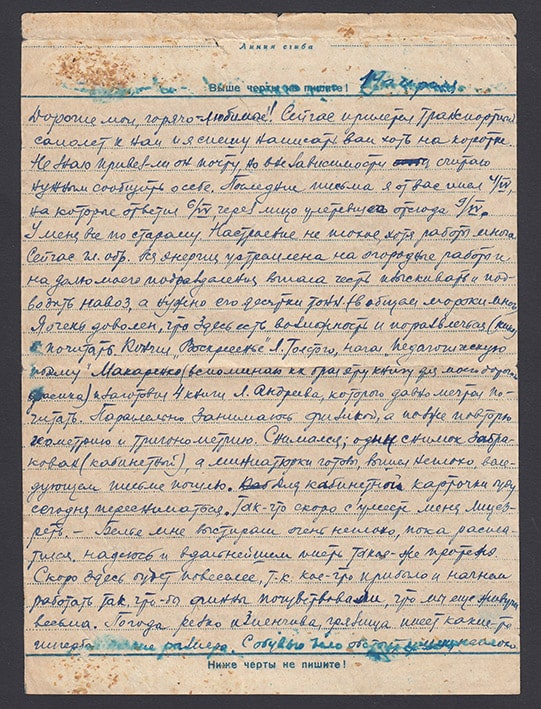 Линия сгиба
Выше черты не пишите! 19 апреля
Дорогие мои, горячо-любимые! Сейчас прилетел транспортный
самолет к нам и я спешу написать вам хоть на коротке.
Не знаю привез ли он почту, но вне зависимости считаю
нужным сообщить о себе. Последние письма я от вас имел 4/IV,
на которые ответил 6/IV, через лицо улетевшее отсюда 9/IV.
У меня все по старому. Настроение не плохое, хотя работы много.
Сейчас гл. обр. вся энергия устремлена на огородные работы и
на долю моего подразделения выпала честь изыскивать и под-
водить навоз, а нужно его десятки тонн. В общем мороки много.
Я очень доволен, что здесь есть возможность и поразвлечься (кино)
и почитать. Кончил "Воскресенье" Л. Толстого, начал "Педагогическую
поэму" Макаренко (вспоминаю как брал эту книгу для моего дорогого
) и заготовил 4 книги Л. Андреева, которого давно мечтал по-
читать. Параллельно занимаюсь физикой, а позже повторю
геометрию и тригонометрию. Снимался; один снимок забра-
кован (кабинетный), а миниатюрки готовы, вышел неплохо, в сле-
дующем письме пошлю. Для кабинетной карточки буду
сегодня пересниматься. Так-что скоро сумеете меня лицез-
реть. – Белье мне выстирали очень неплохо, пока распла-
тился, надеюсь и в дальнейшем иметь такое-же протеже.
Скоро здесь будет повеселее, т.к. кое-что прибыло и начнем
работать так, что-бы финны почувствовали, что мы еще живы и
весьма. Погода резко изменчива, грязища имеет какие-то
размера. С обувью дело обстоит неплохо.
Ниже черты не пишите!